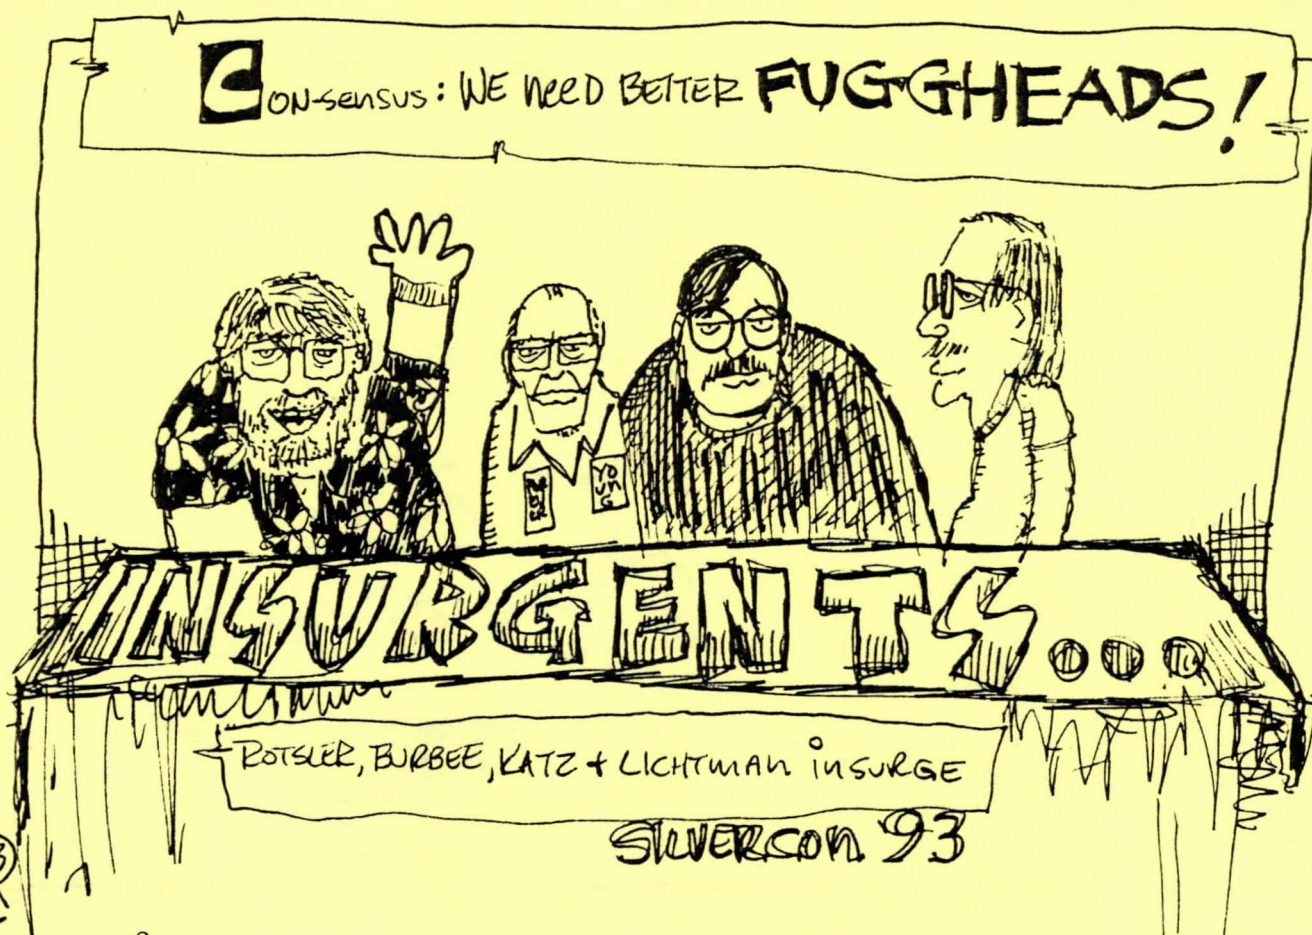 CON-SENSUS: WE NEED BETTER FUGGHEADS!
YOUNG
INSURGENTS...
ROTSLER, BURBEE, KATZ + LICHTMAN INSURGE
SILVERCON '93